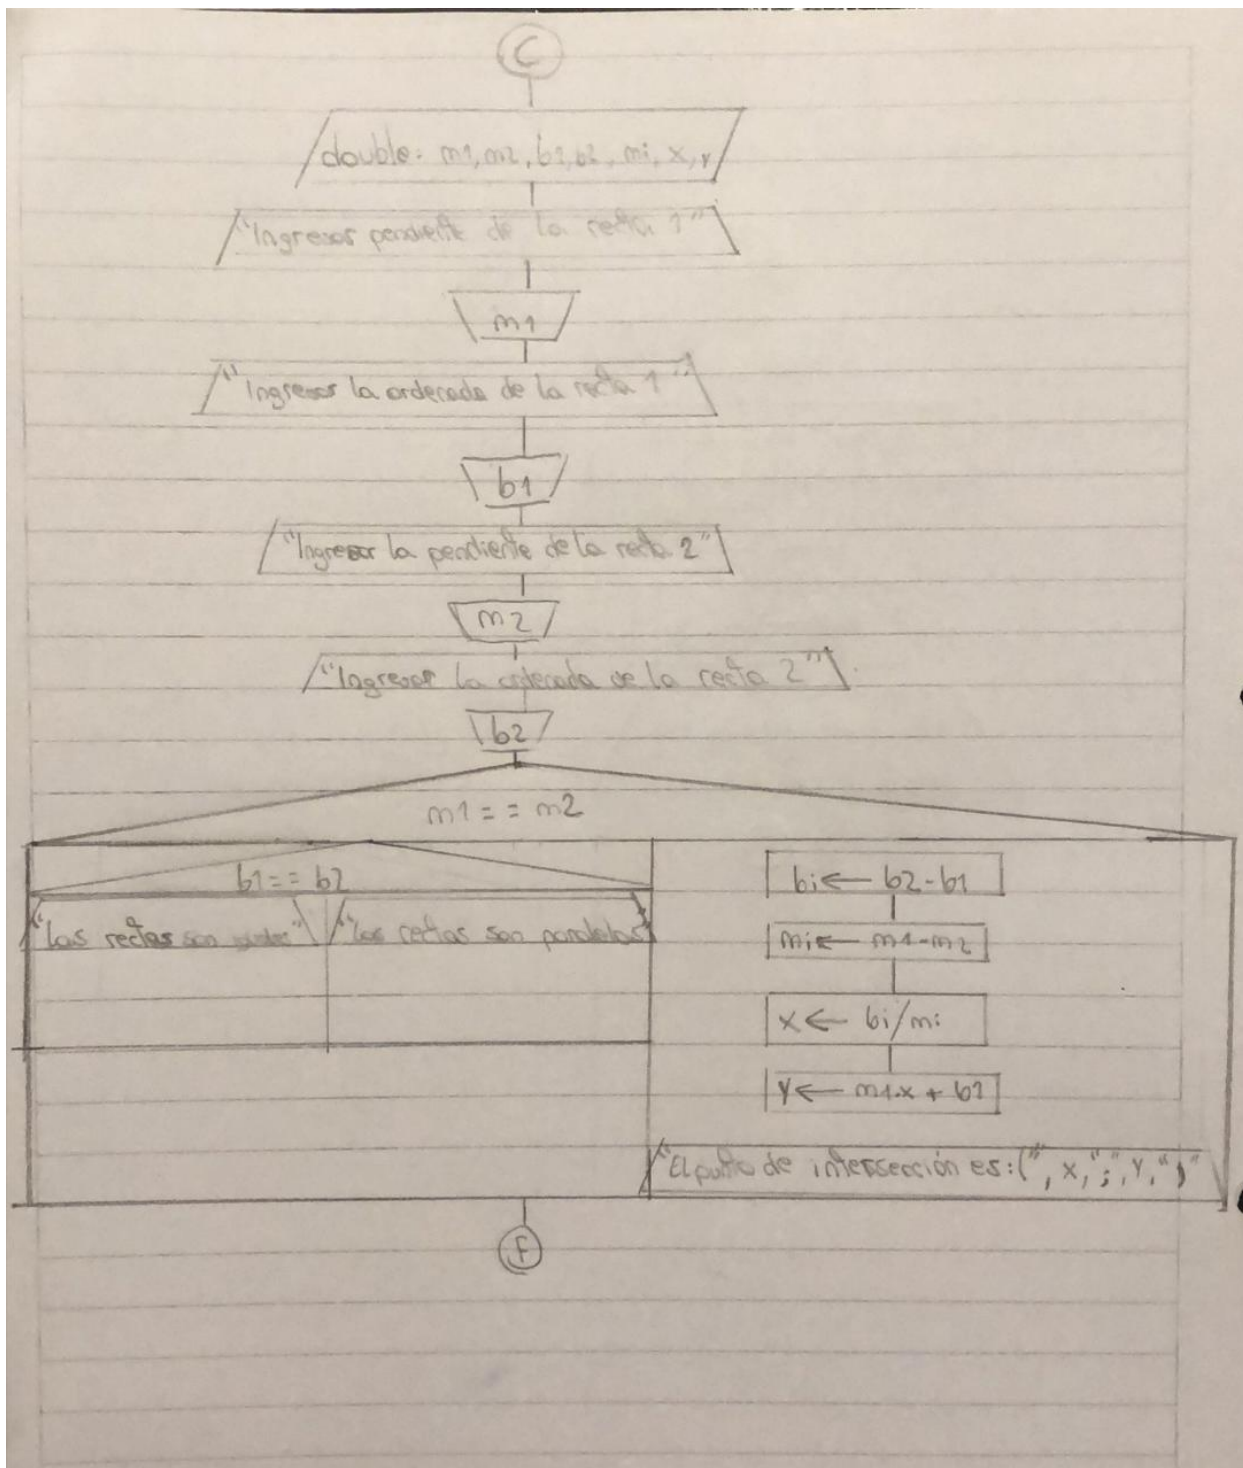 C
double: m1, m2, b1, b2, mi, x, y
"Ingresar pendiente de la recta 1"
m1
"Ingresar la ordenada de la recta 1"
b1
"Ingresar la pendiente de la recta 2"
m2
"Ingresar la ordenada de la recta 2"
b2
m1 = = m2
b1 = = b2
"Las rectas son
"Las rectas son paralelas"
bi ← b2 - b1
mi ← m1 - m2
x ← bi/mi
y ← m1.x + b1
"El punto de intersección es: (", x, ";", y, ")"
F